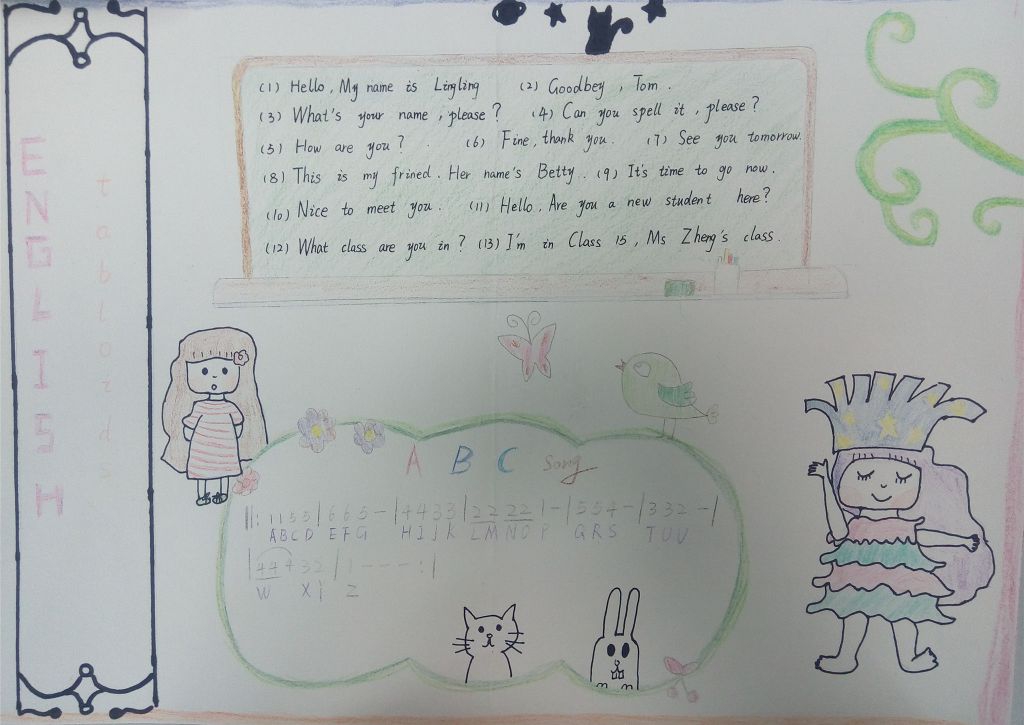 ENGLISH
tabloids
(1) Hello, My name is Lingling (2) Goodbey, Tom.
(3) What's your name, please? (4) Can you spell it, please?
(5) How are you? (6) Fine, thank you. (7) See you tomorrow.
(8) This is my frined. Her name's Betty. (9) It's time to go now.
(10) Nice to meet you. (11) Hello, Are you a new student here?
(12) What class are you in? (13) I'm in Class 15, Ms Zheng's class.
A B C song
||: 1155|665-|4433|2222 1-|554-|332-|
ABCD EFG HIJK LMNO P QRS TUV
|44432|1---:|
W X Z